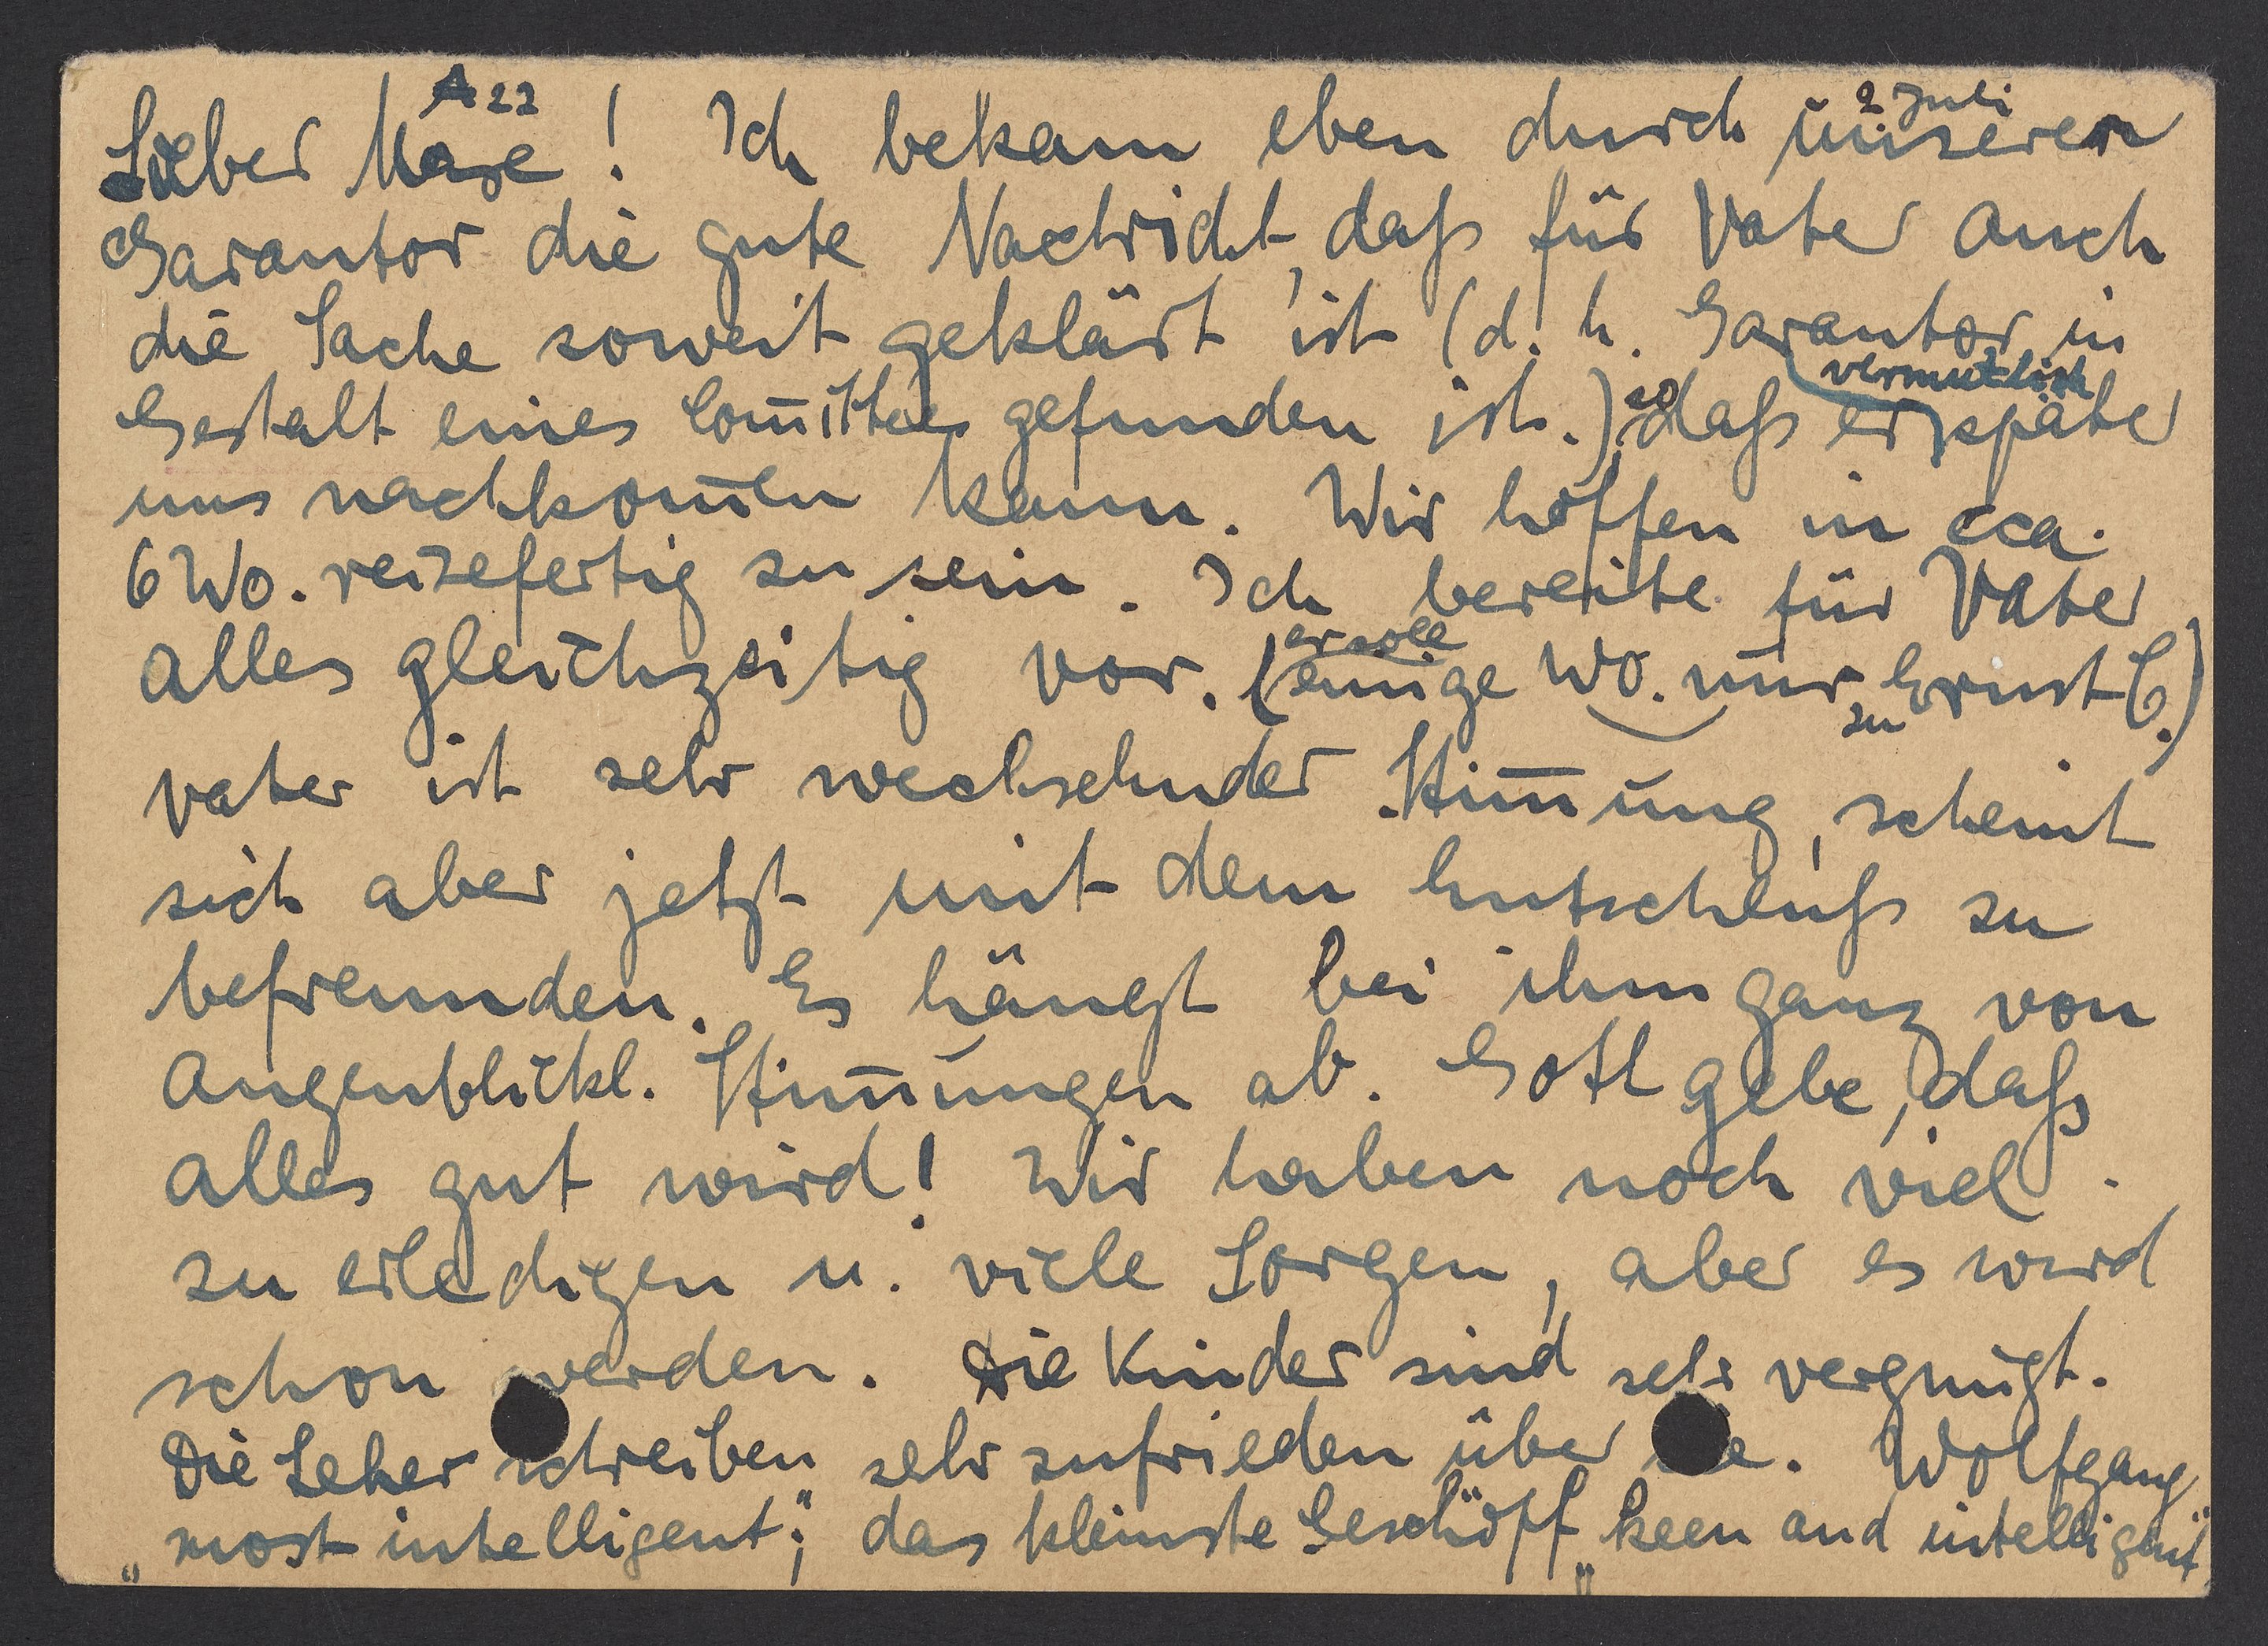 A 22
2 Juli
Lieber Maxe! Ich bekam eben durch unseren
Garantor die gute Nachricht, daß für Vater auch
die Sache soweit geklärt ist (d. h. Garantor in
Gestalt eines Comittees gefunden ist.) so daß er vermutlich später
uns nachkom̅en kann. Wir hoffen in cca.
6 Wo. reisefertig zu sein. Ich bereite für Vater
alles gleichzeitig vor. (er soll einige Wo. nur zu Ernst C.)
Vater ist sehr wechselnder Stim̅ung, scheint
sich aber jetzt mit dem Entschluß zu
befreunden. Es hängt bei ihm ganz von
augenblickl. Stim̅ungen ab. Gott gebe, daß
alles gut wird! Wir haben noch viel
zu erledigen u. viele Sorgen, aber es wird
schon werden. Die Kinder sind sehr vergnügt.
Die Leher schreiben sehr zufrieden über sie. Wolfgang
„most intelligent“; das kleinste Geschöpf „keen and intelligent“